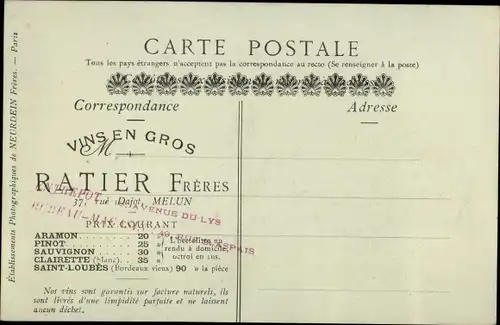 CARTE POSTALE
Tous les pays étrangers n'acceptent pas la correspondance au recto (Se renseigner à la poste)
Correspondance
Adresse
VINS EN GROS
M
RATIER FRÈRES
37, rue Dajot, MELUN
ENTREPOT
AVENUE DU LYS
PRIX COURANT
ARAMON 20 »
PINOT 25 »
SAUVIGNON 30 »
CLAIRETTE (blanc) 35 »
L'hectolitre nu
rendu à domicile,
octroi en sus.
SAINT-LOUBÈS (Bordeaux vieux) 90 » la pièce
Nos vins sont garantis sur facture naturels, ils
sont livrés d'une limpidité parfaite et ne laissent
aucun déchet.
Établissements Photographiques de NEURDEIN Frères. — Paris